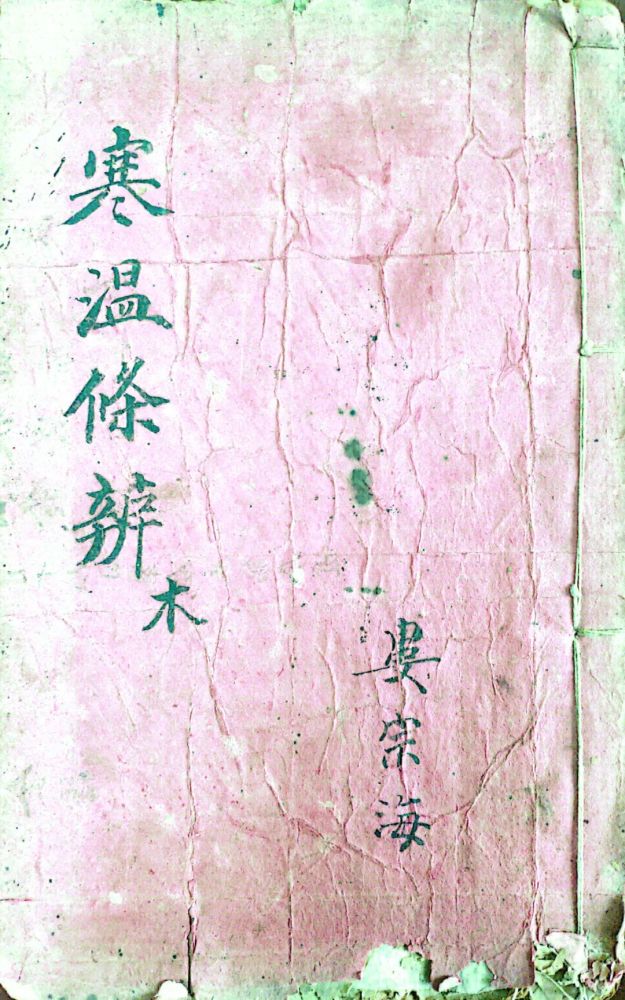 寒温條辨
木
婁宗海